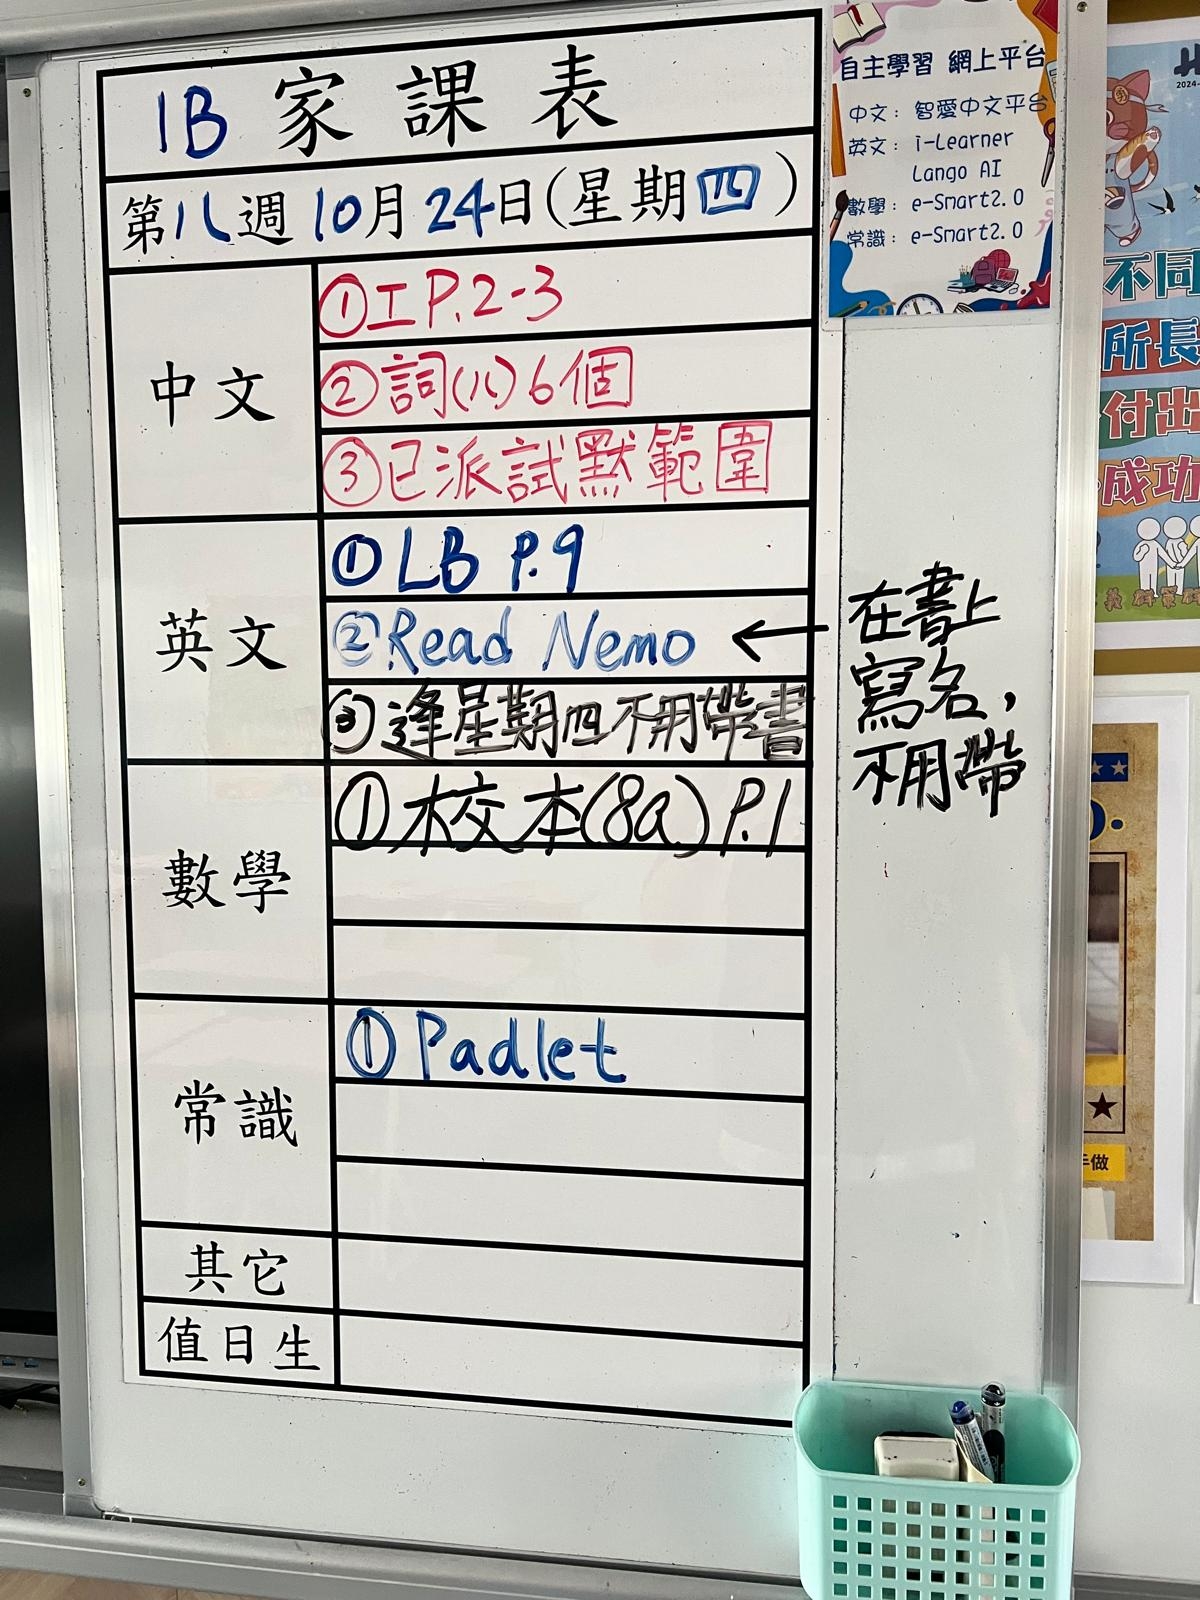 1B 家課表
第八週10月24日(星期四)
中文
①工P.2-3
②詞(八)6個
③已派試默範圍
英文
①LB P.9
②Read Nemo
③逢星期四不用帶書
在書上
寫名,
不用帶
數學
①校本(8a)P.1
常識
①Padlet
其它
值日生
自主學習 網上平台
中文: 智愛中文平台
英文: i-Learner
Lango AI
數學: e-Smart2.0
常識: e-Smart2.0
2024-
不同
所長
付出
成功
手做